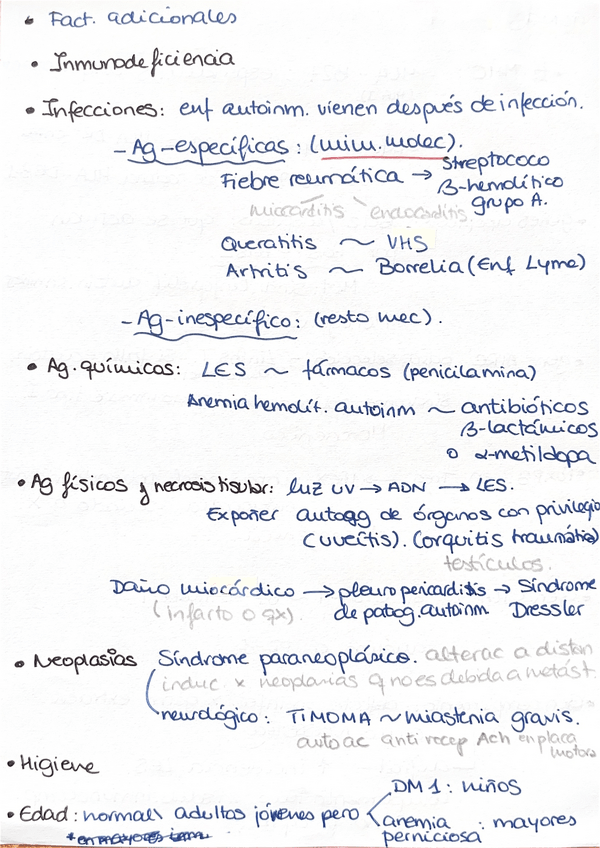 • Fact. adicionales
• Inmunodeficiencia
• Infecciones: enf autoinm. vienen después de infección.
- Ag-específicas: (mim. molec).
Fiebre reumática → Streptococo
β-hemolítico
grupo A.
miocarditis endocarditis
Queratitis ~ VHS
Artritis ~ Borrelia (Enf Lyme)
- Ag-inespecífico: (resto mec).
• Ag. químicos: LES ~ fármacos (penicilamina)
Anemia hemolít. autoinm ~ antibióticos
β-lactámicos
o α-metildopa
• Ag físicos y necrosis tisular: luz UV → ADN → LES.
Exponer autoagg de órganos con privilegio
(uveítis). (orquitis traumática)
testículos.
Daño miocárdico → pleuropericarditis → Síndrome
(infarto o qx). de patog. autoinm Dressler
• Neoplasias Síndrome paraneoplásico. alterac a distan
induc. x neoplasias q no es debida a metást.
neurológico: TIMOMA ~ miastenia gravis.
autoac anti recep Ach en placa
motora
• Higiene
DM1: niños
• Edad: normal\ adultos jóvenes pero
anemia : mayores
perniciosa